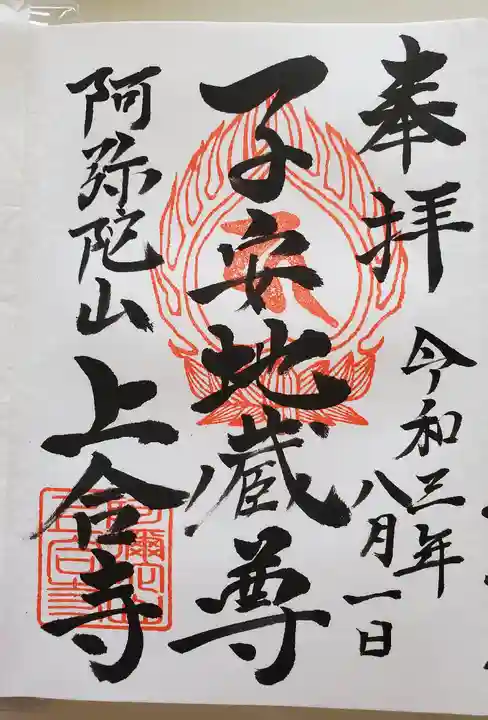 奉拝
令和三年
八月一日
子安地蔵尊
阿弥陀山
上合寺